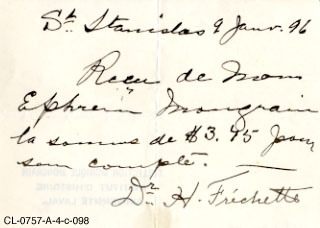 St. Stanislas 9 Janv. 96
Recu de Mons
Ephrem Mongrain
la somme de $3.95 pour
som compte.
Dr. H. Fréchette
CL-0757-A-4-c-098